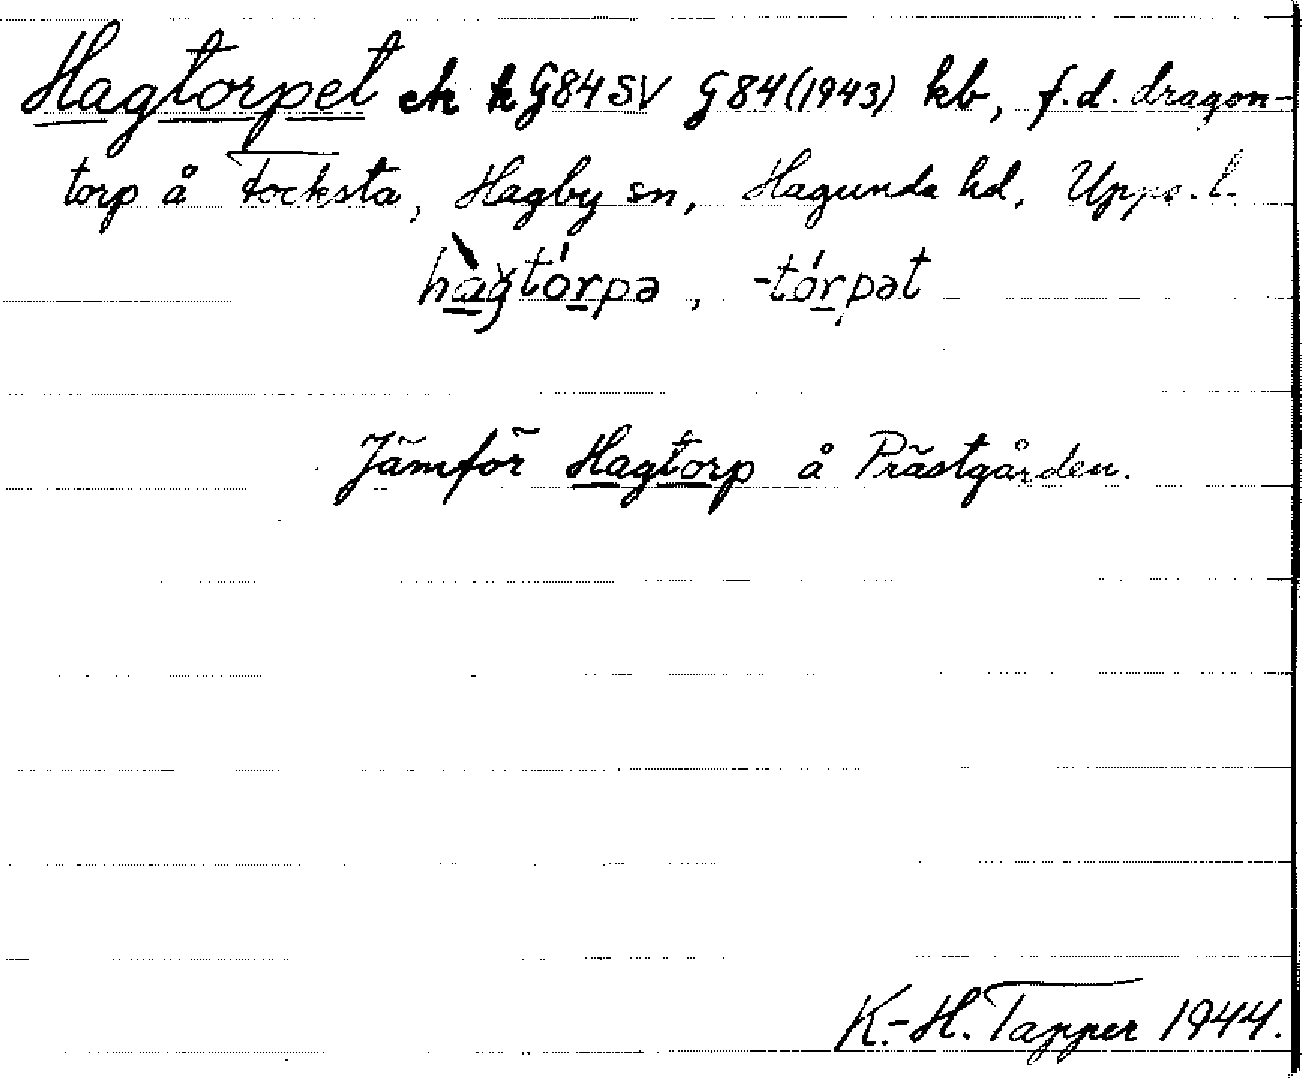 Hagtorpet ek k G84SV G84(1943) kb, f.d. dragon-
torp å Focksta, Hagby sn, Hagunda hd, Upps. l.
hàgtórpə, -tórpət
Jämför Hagtorp å Prästgården.
K.-H. Tapper 1944.